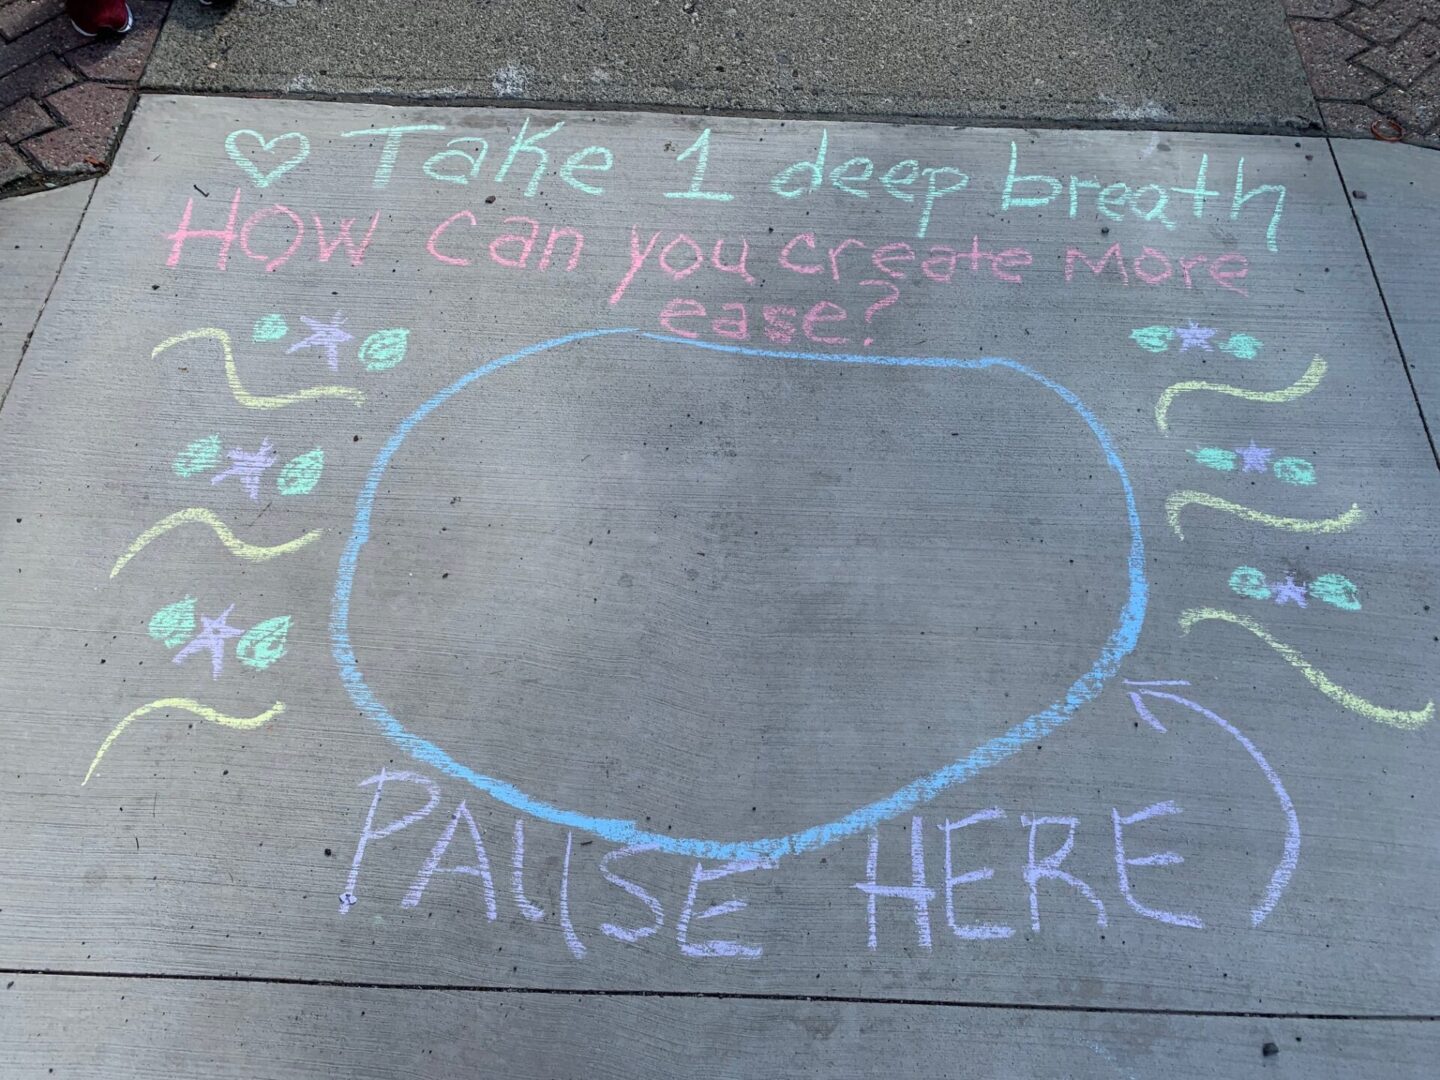 Take 1 deep breath
How can you create more
ease?
PAUSE HERE